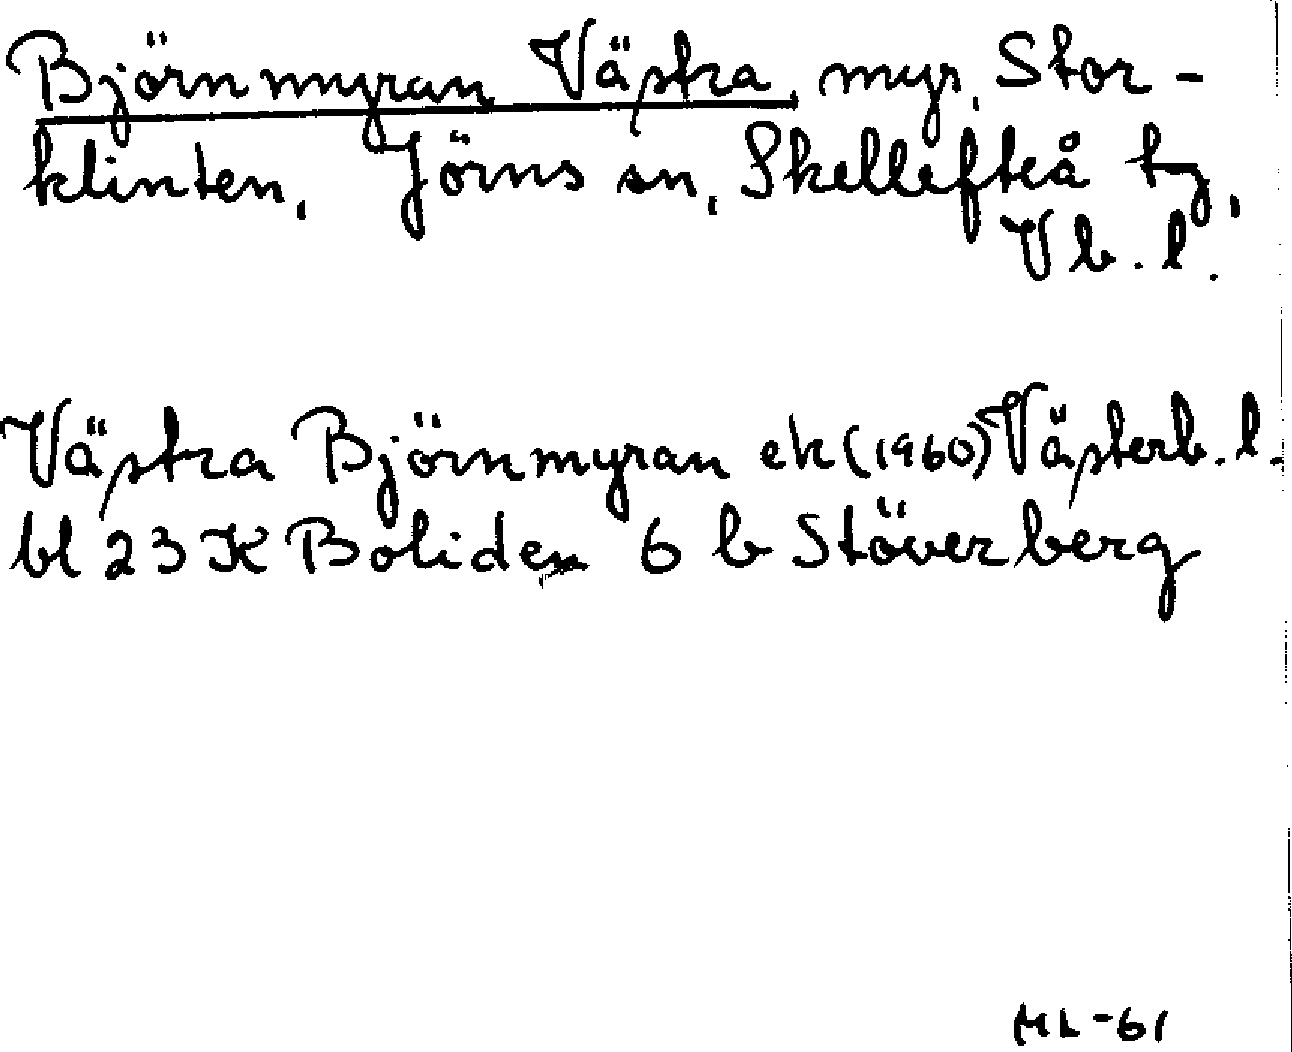 Björnmyran Västra, myr, Stor-
klinten, Jörns sn, Skellefteå tg,
Vb. l.
Västra Björnmyran ek (1960) Västerb. l.
bl 23 K Boliden 6 b Stöverberg
ML -61